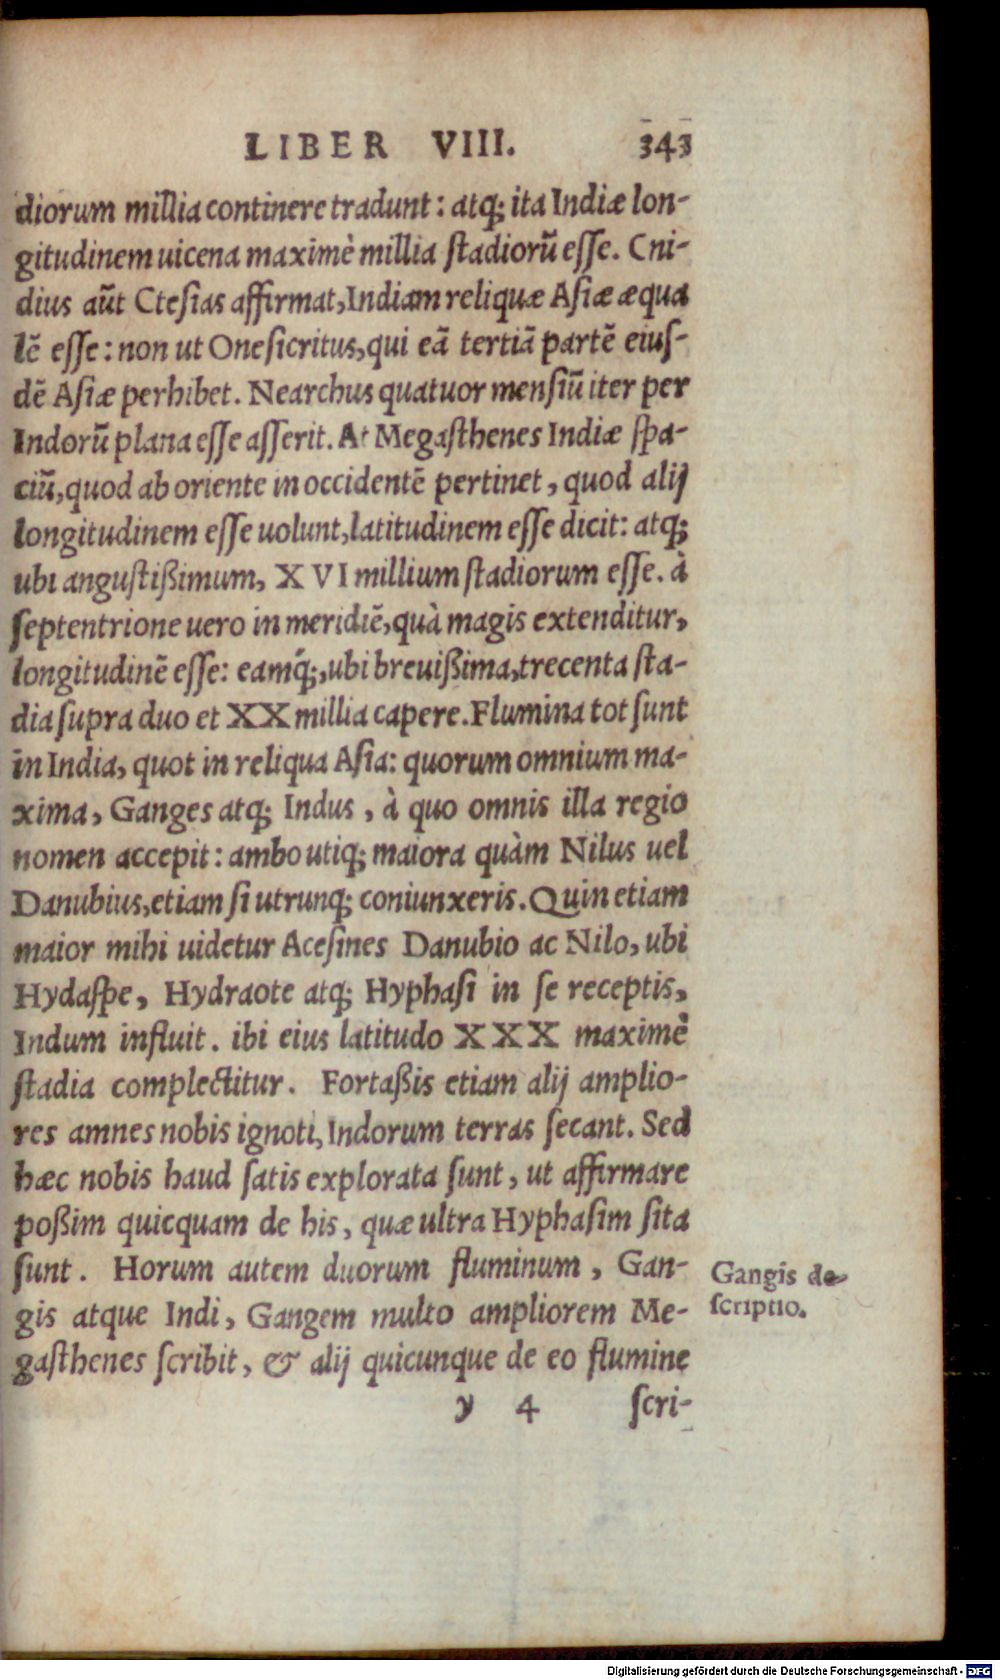 LIBER VIII. 343
diorum millia continere tradunt: atq; ita Indiæ lon-
gitudinem uicena maximè millia ſtadiorũ eſſe. Cni-
dius aũt Cteſias affirmat, Indiam reliquæ Aſiæ æqua
lẽ eſſe: non ut Oneſicritus, qui eã tertiã partẽ eiuſ-
dẽ Aſiæ perhibet. Nearchus quatuor menſiũ iter per
Indorũ plana eſſe aſſerit. At Megaſthenes Indiæ ſpa-
ciũ, quod ab oriente in occidentẽ pertinet, quod alij
longitudinem eſſe uolunt, latitudinem eſſe dicit: atq;
ubi anguſtißimum, XVI millium ſtadiorum eſſe. à
ſeptentrione uero in meridiẽ, quà magis extenditur,
longitudinẽ eſſe: eamq́;, ubi breuißima, trecenta ſta-
dia ſupra duo et XX millia capere. Flumina tot ſunt
in India, quot in reliqua Aſia: quorum omnium ma-
xima, Ganges atq; Indus, à quo omnis illa regio
nomen accepit: ambo utiq; maiora quàm Nilus uel
Danubius, etiam ſi utrunq; coniunxeris. Quin etiam
maior mihi uidetur Aceſines Danubio ac Nilo, ubi
Hydaſpe, Hydraote atq; Hyphaſi in ſe receptis,
Indum influit. ibi eius latitudo XXX maximè
ſtadia complectitur. Fortaßis etiam alij amplio-
res amnes nobis ignoti, Indorum terras ſecant. Sed
hæc nobis haud ſatis explorata ſunt, ut affirmare
poßim quicquam de his, quæ ultra Hyphaſim ſita
ſunt. Horum autem duorum fluminum, Gan-
gis atque Indi, Gangem multo ampliorem Me-
gaſthenes ſcribit, & alij quicunque de eo flumine
Gangis de-
ſcriptio.
y 4 ſcri-
Digitalisierung gefördert durch die Deutsche Forschungsgemeinschaft - DFG